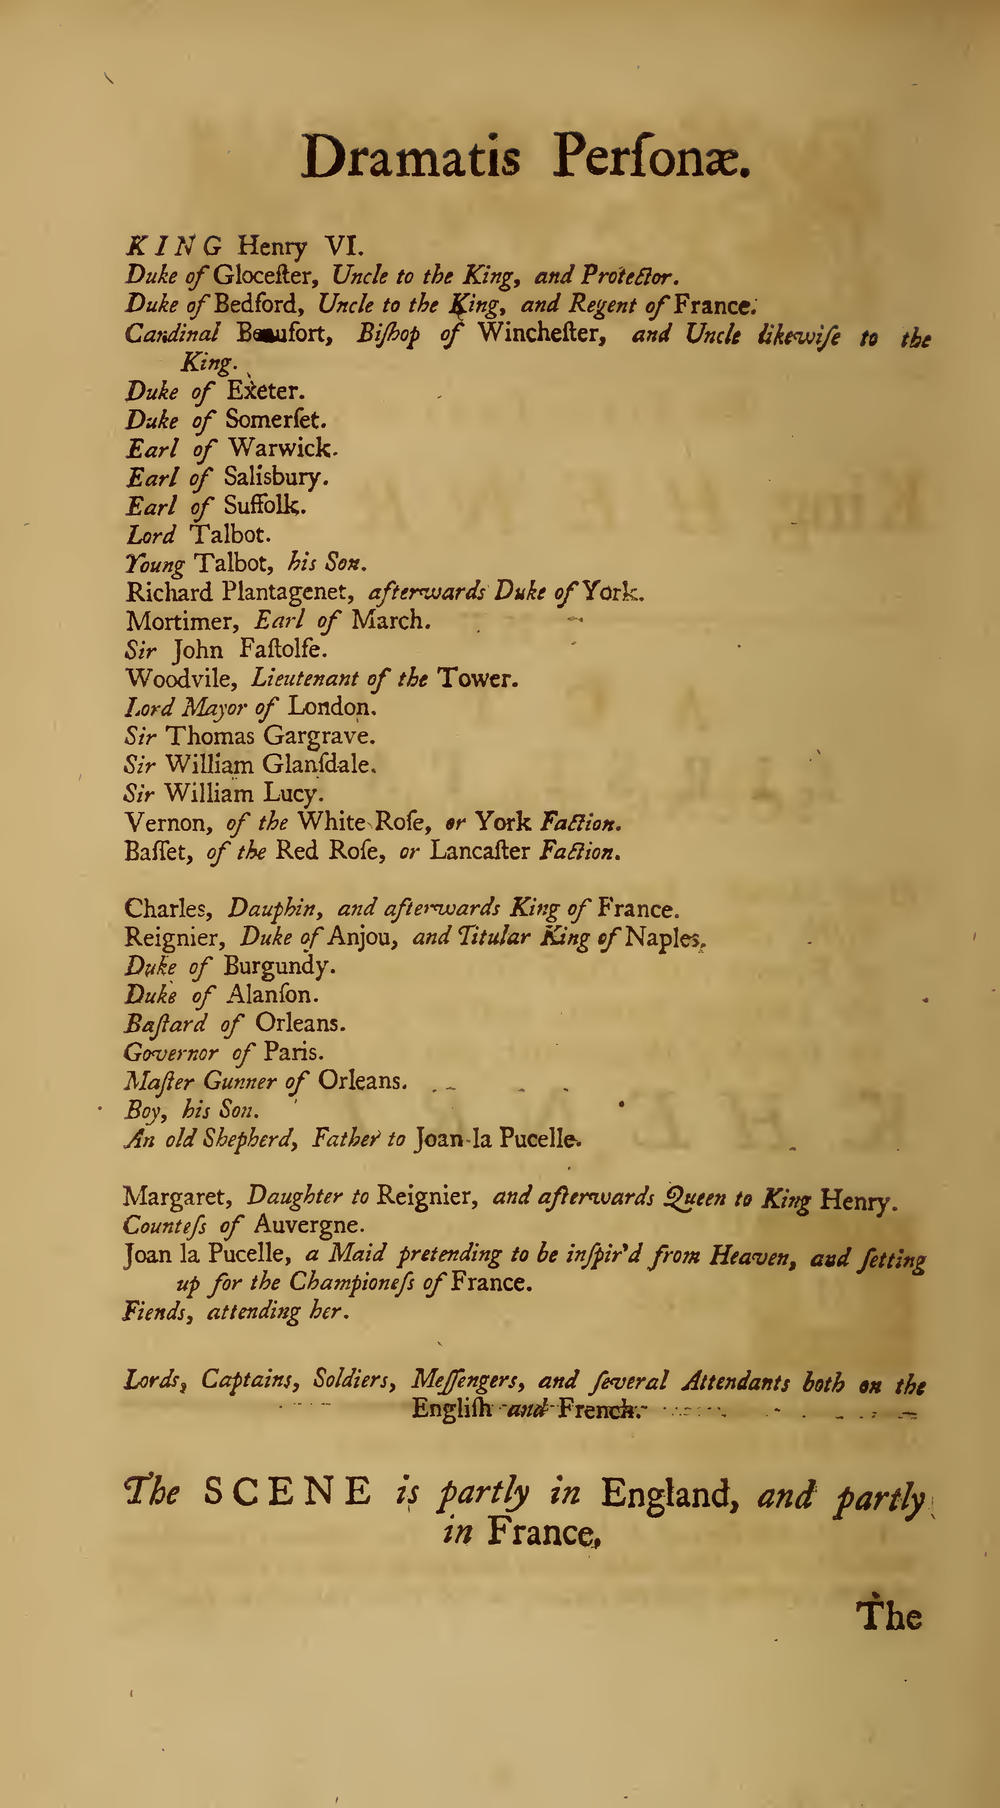 Dramatis Perſonæ.
KING Henry VI.
Duke of Gloceſter, Uncle to the King, and Protector.
Duke of Bedford, Uncle to the King, and Regent of France.
Cardinal Beaufort, Biſhop of Wincheſter, and Uncle likewiſe to the
King.
Duke of Exeter.
Duke of Somerſet.
Earl of Warwick.
Earl of Salisbury.
Earl of Suffolk.
Lord Talbot.
Young Talbot, his Son.
Richard Plantagenet, afterwards Duke of York.
Mortimer, Earl of March.
Sir John Faſtolfe.
Woodvile, Lieutenant of the Tower.
Lord Mayor of London.
Sir Thomas Gargrave.
Sir William Glanſdale.
Sir William Lucy.
Vernon, of the White Roſe, or York Faction.
Baſſet, of the Red Roſe, or Lancaſter Faction.
Charles, Dauphin, and afterwards King of France.
Reignier, Duke of Anjou, and Titular King of Naples.
Duke of Burgundy.
Duke of Alanſon.
Baſtard of Orleans.
Governor of Paris.
Maſter Gunner of Orleans.
Boy, his Son.
An old Shepherd, Father to Joan la Pucelle.
Margaret, Daughter to Reignier, and afterwards Queen to King Henry.
Counteſs of Auvergne.
Joan la Pucelle, a Maid pretending to be inſpir'd from Heaven, and ſetting
up for the Championeſs of France.
Fiends, attending her.
Lords, Captains, Soldiers, Meſſengers, and ſeveral Attendants both on the
Engliſh and French.
The SCENE is partly in England, and partly
in France.
The